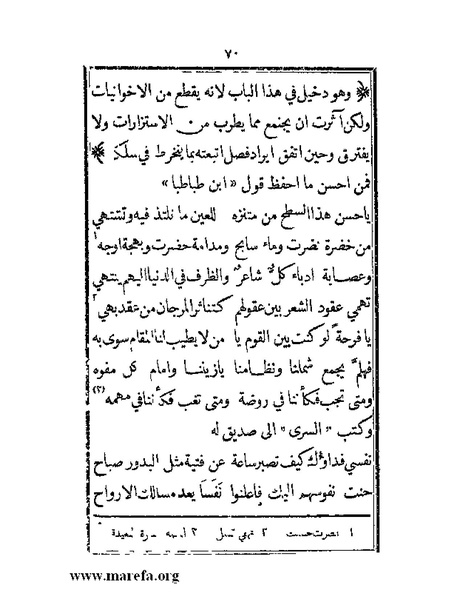 ٧٠
﴿ وهو دخيل في هذا الباب لانه يقطع من الاخوانيات
ولكن آثرت ان يجتمع مما يطرب من الاستزارات ولا
يفترق وحين اتفق ايراد فصل اتبعته بما ينخرط في سلكه ﴾
فمن احسن ما احفظ قول « ابن طباطبا »
ياحسن هذا السطح من متنزه للعين ما نلتذ فيه وتشتهي
من خضرة نضرت وماء سابح ومدامة حضرت وبهجة اوجه
وعصابة ادباء كلٌّ شاعر والظرف في الدنيا اليهم ينتهي
تهمي عقود الشعر بين عقولهم كتناثر المرجان من عقد بهي
يا فرحةً لو كنت بين القوم يا من لا يطيب لنا المقام سوى به
فهلمَّ يجمع شملنا ونظامنا يازيننا وامام كل مفوه
ومتى تجب فكأننا في روضة ومتى تغب فكأننا في مهمه (٣)
وكتب « السرى » الى صديق له
نفسي فداؤك كيف تصبر ساعة عن فتية مثل البدور صباح
حنت نفوسهم اليك فاعلنوا نَفَسا يعد مسالك الارواح
١ نضرت حسنت ٢ تهمي تسيل ٣ المهمه البعيدة
www.marefa.org